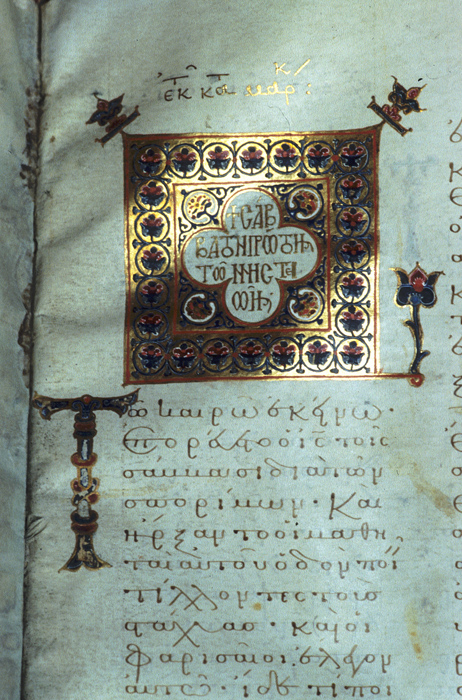 ἐκ κατ μαρκ
+ CΑΒ
ΤΩΝ ΝΗCΤΕΙ
ΩΝ
Τῶ καιρῶ ἐκείνω·
ἐπορεύετο ὁ ις τοῖς
σάββασι διὰ τῶν
σπορίμων· Καὶ
ἤρξαντο οἱ μαθη
ταὶ αὐτοῦ ὁδὸν ποι
τίλλοντες τοὺς
στάχυας· καὶ οἱ
Φαρισαῖοι ἔλεγον
αὐτῶ· ἴδε τί ποι